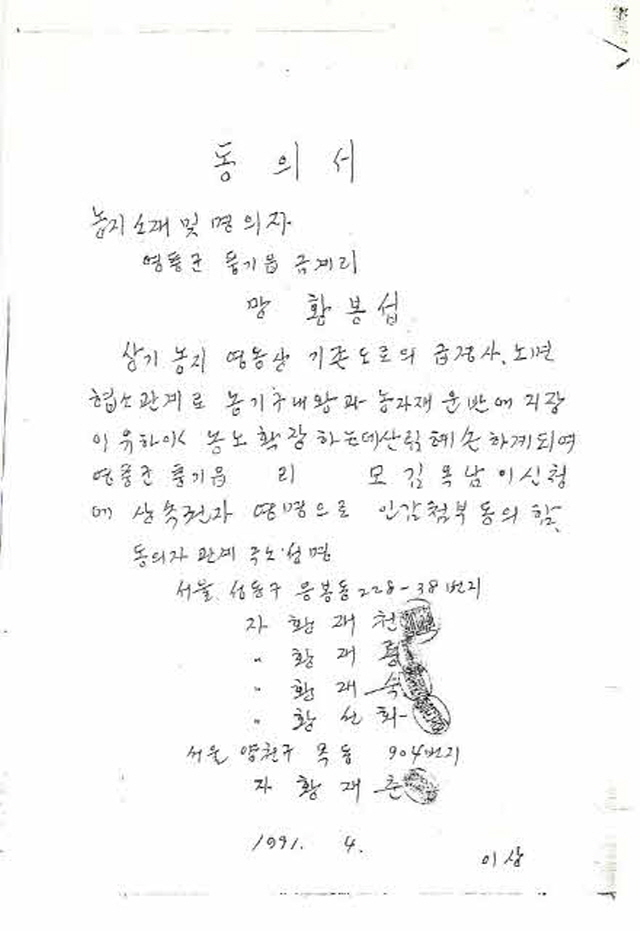 동의서
농지소재 및 명의자
영풍군 풍기읍 금계리
망 황봉섭
상기 농지 영농상 기존도로의 급경사, 노면
협소관계로 농기구내왕과 농자재 운반에 지장
이 유하야 농노확장하는데 산림훼손하게되여
영풍군 풍기읍 리 모 김옥남이 신청
에 상속권자 연명으로 인감첨부 동의함.
동의자 관계 주소 성명
서울 성동구 응봉동 228-38번지
자 황재천
〃 황재룡
〃 황재숙
〃 황선화
서울 양천구 목동 904번지
자 황재준
1991. 4.
이상